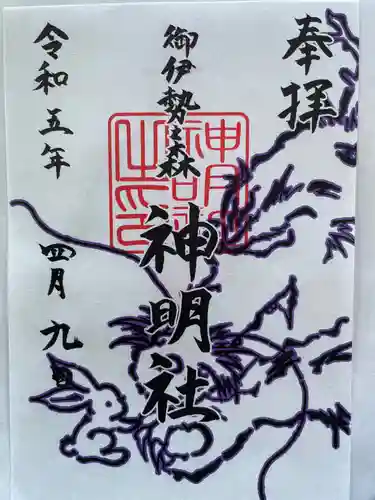 奉拝
御伊勢之森
神明社
令和五年 四月 九日